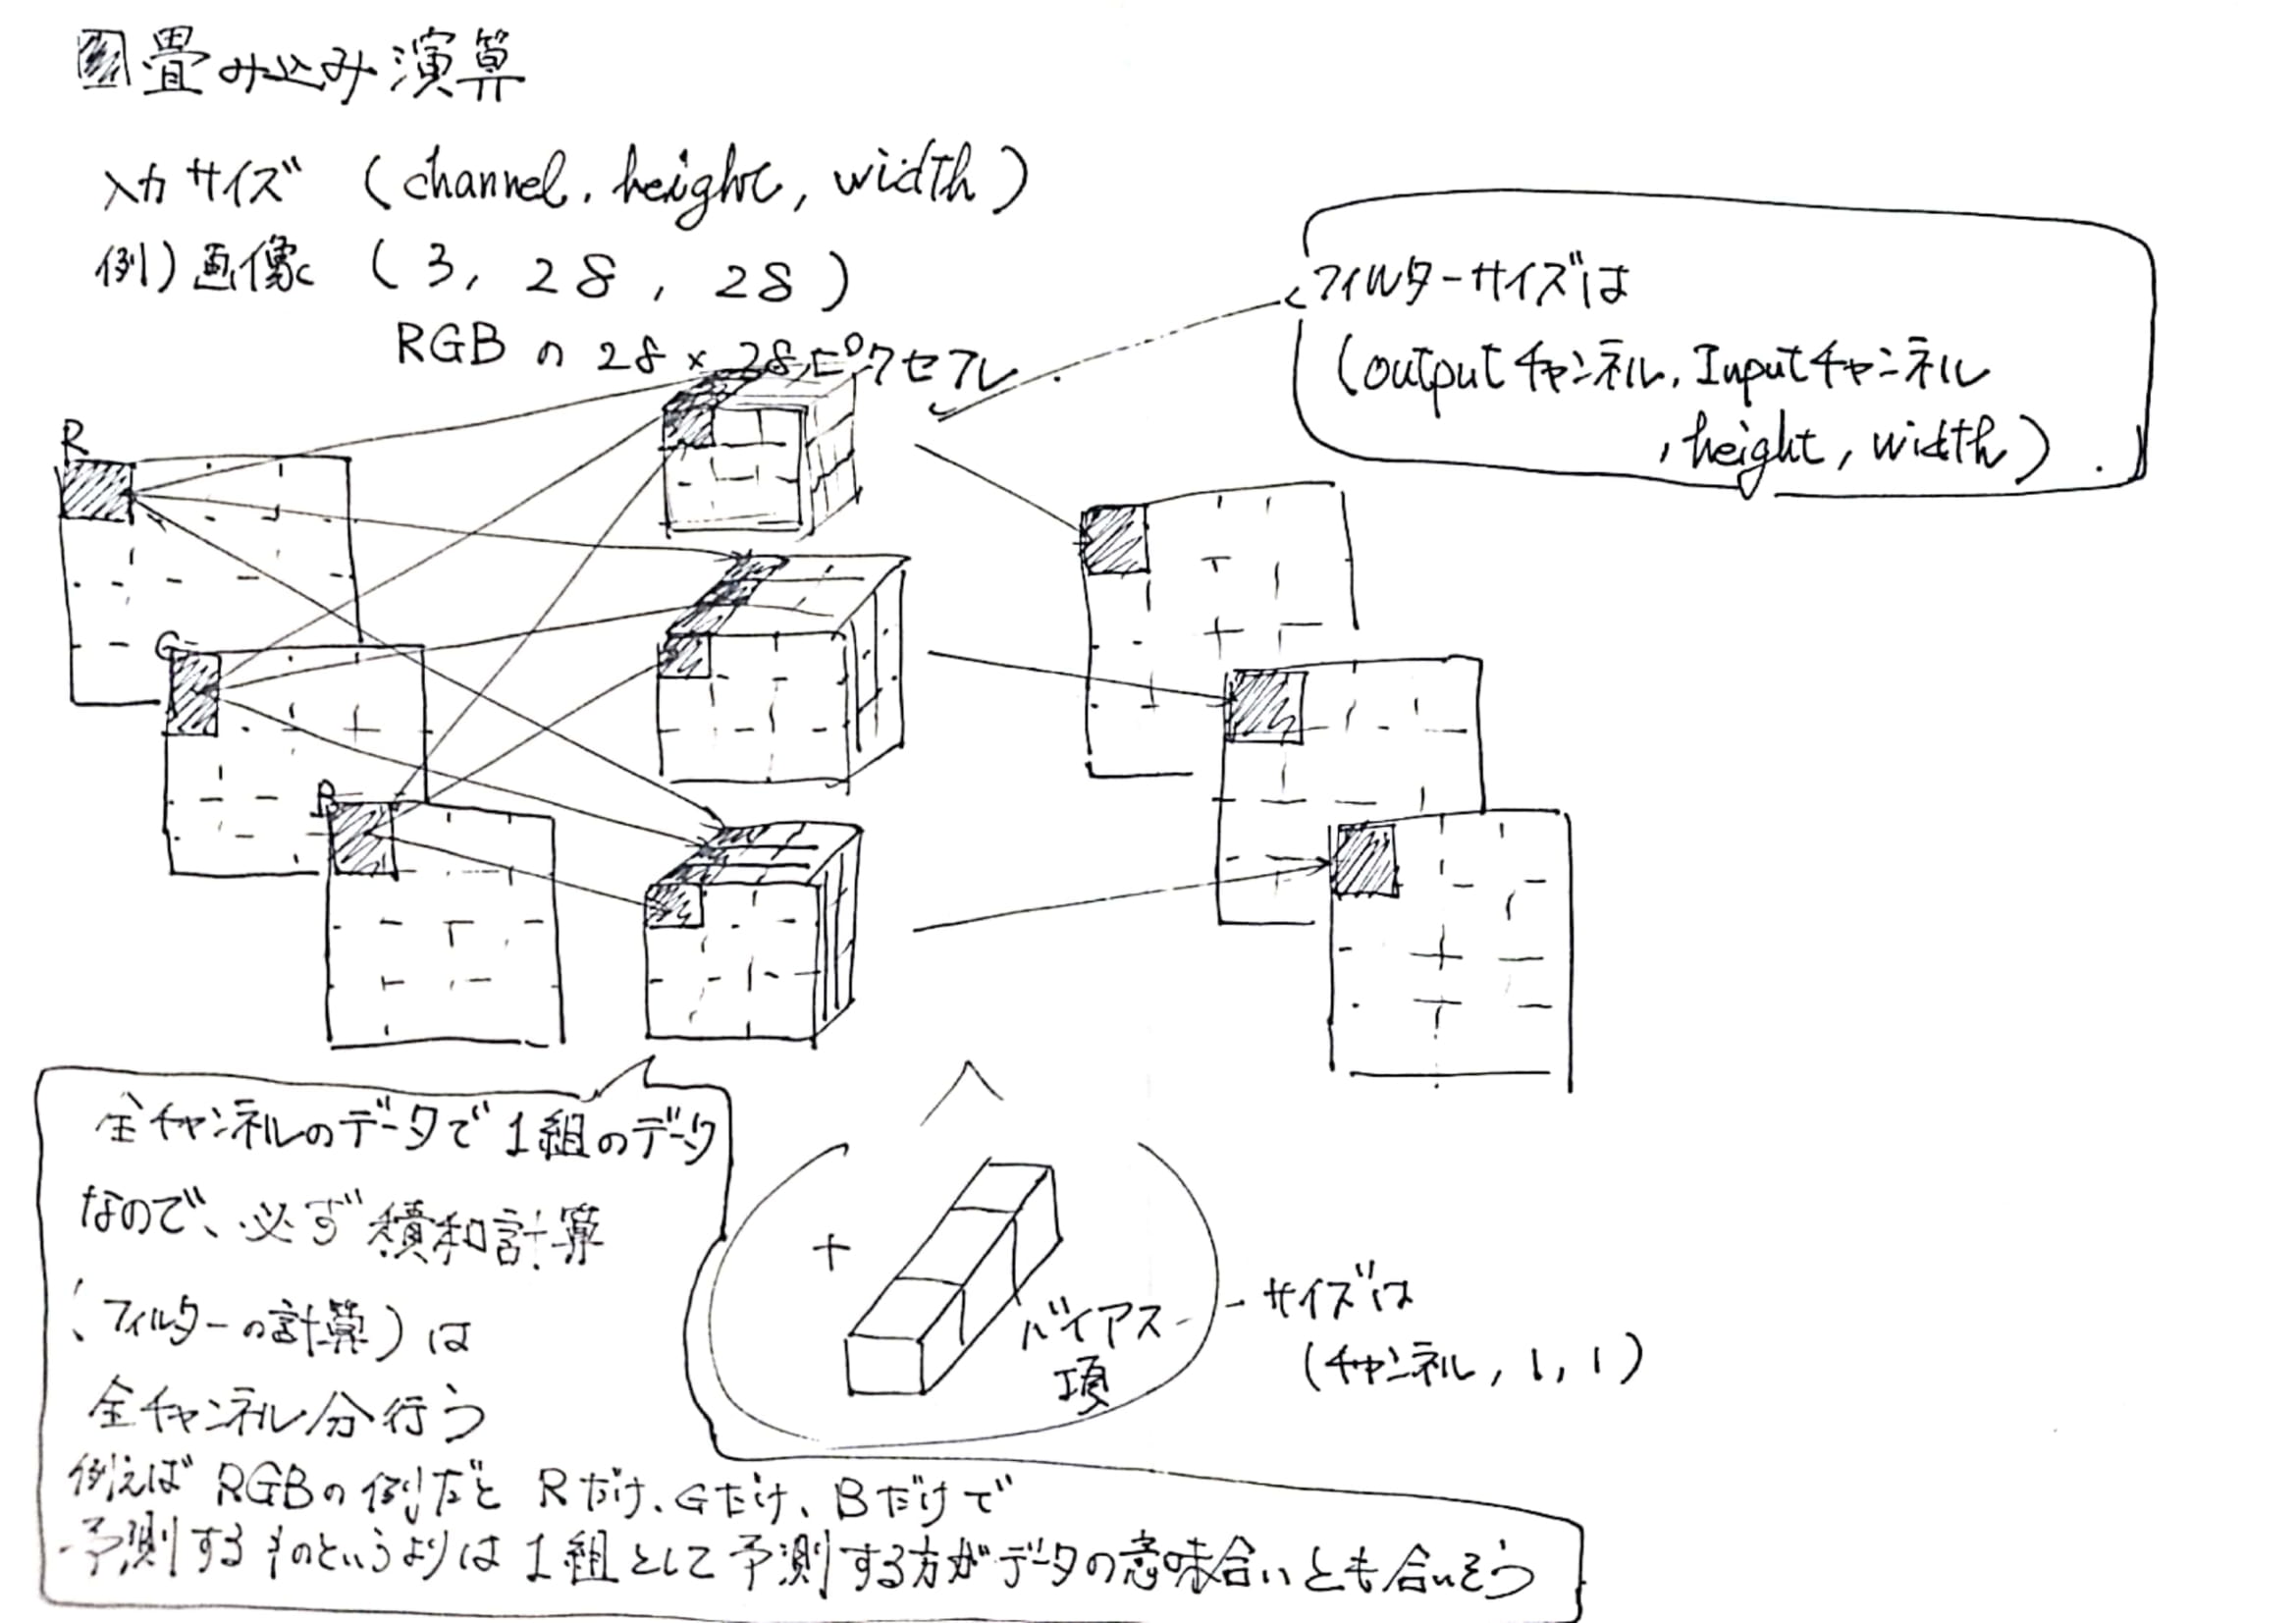 畳み込み演算
入力サイズ (channel, height, width)
例)画像 (3, 28, 28)
RGB の 28×28ピクセル.
フィルターサイズは
(outputチャンネル, Inputチャンネル
, height, width).
R
G
B
全チャンネルのデータで1組のデータ
なので、必ず積和計算
(フィルターの計算)は
全チャンネル分行う
例えば RGBの例だと Rだけ、Gだけ、Bだけで
予測するものというよりは1組として予測する方がデータの意味合いとも合いそう
+
バイアス
項
サイズは
(チャンネル, 1, 1)